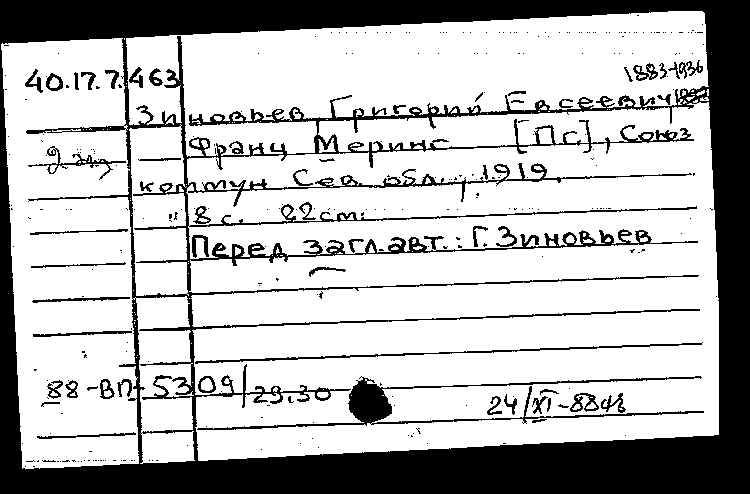 1883-1936
40.17.7.463
Зиновьев, Григорий Евсеевич, 1883
Франц Меринг [Пг.], Союз
2 экз
коммун Сев. обл., 1919.
8 с. 22 cm.
Перед загл. авт.: Г. Зиновьев
88-ВП-5309/29.30
24/XI-88